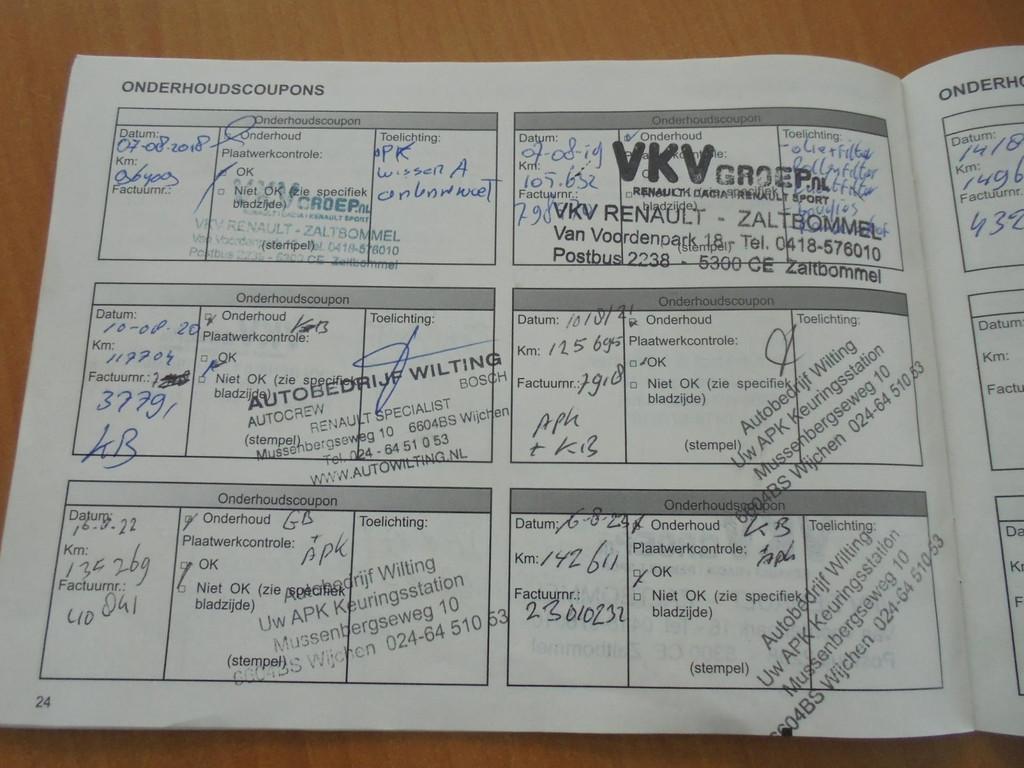 ONDERHOUDSCOUPONS
Onderhoudscoupon
Datum:
07-08-2018
Km:
96409
Factuurnr.:
Onderhoud
Plaatwerkcontrole:
OK
Niet OK (zie specifiek
bladzijde)
(stempel)
Toelichting:
APK
wissen A
VKV GROEP.nl
RENAULT | DACIA | RENAULT SPORT
VKV RENAULT - ZALTBOMMEL
Van Voordenpark 18 - Tel. 0418-576010
Postbus 2238 - 5300 CE Zaltbommel
Onderhoudscoupon
Datum:
07-08-19
Km:
105.632
Factuurnr.:
Onderhoud
Plaatwerkcontrole:
Toelichting:
-oliefilter
Pollenfilter
(stempel)
VKV GROEP.nl
RENAULT | DACIA | RENAULT SPORT
VKV RENAULT - ZALTBOMMEL
Van Voordenpark 18 - Tel. 0418-576010
Postbus 2238 - 5300 CE Zaltbommel
Onderhoudscoupon
Datum:
10-08-20
Km:
117704
Factuurnr.:
3779,
KB
Onderhoud KB
Plaatwerkcontrole:
OK
Niet OK (zie specifiek
bladzijde)
(stempel)
Toelichting:
AUTOBEDRIJF WILTING
BOSCH
AUTOCREW
RENAULT SPECIALIST
Mussenbergseweg 10 6604BS Wijchen
Tel. 024 - 64 51 0 53
WWW.AUTOWILTING.NL
Onderhoudscoupon
Datum: 10/8/21
Km: 125695
Factuurnr.: 7918
APK
+ KB
Onderhoud
Plaatwerkcontrole:
OK
Niet OK (zie specifiek
bladzijde)
(stempel)
Toelichting:
Autobedrijf Wilting
Uw APK Keuringsstation
Mussenbergseweg 10
6604BS Wijchen 024-64 510 53
Onderhoudscoupon
Datum:
16-8-22
Km:
135269
Factuurnr.:
40841
Onderhoud GB
+ APK
Plaatwerkcontrole:
OK
Niet OK (zie specifiek
bladzijde)
(stempel)
Toelichting:
Autobedrijf Wilting
Uw APK Keuringsstation
Mussenbergseweg 10
6604BS Wijchen 024-64 510 53
Onderhoudscoupon
Datum: 16-8-23
Km: 142611
Factuurnr.:
23010232
Onderhoud KB
+ APK
Plaatwerkcontrole:
OK
Niet OK (zie specifiek
bladzijde)
(stempel)
Toelichting:
Autobedrijf Wilting
Uw APK Keuringsstation
Mussenbergseweg 10
6604BS Wijchen 024-64 510 53
24
ONDERHO
Datum:
Km:
Factu
Da
Km
Fac